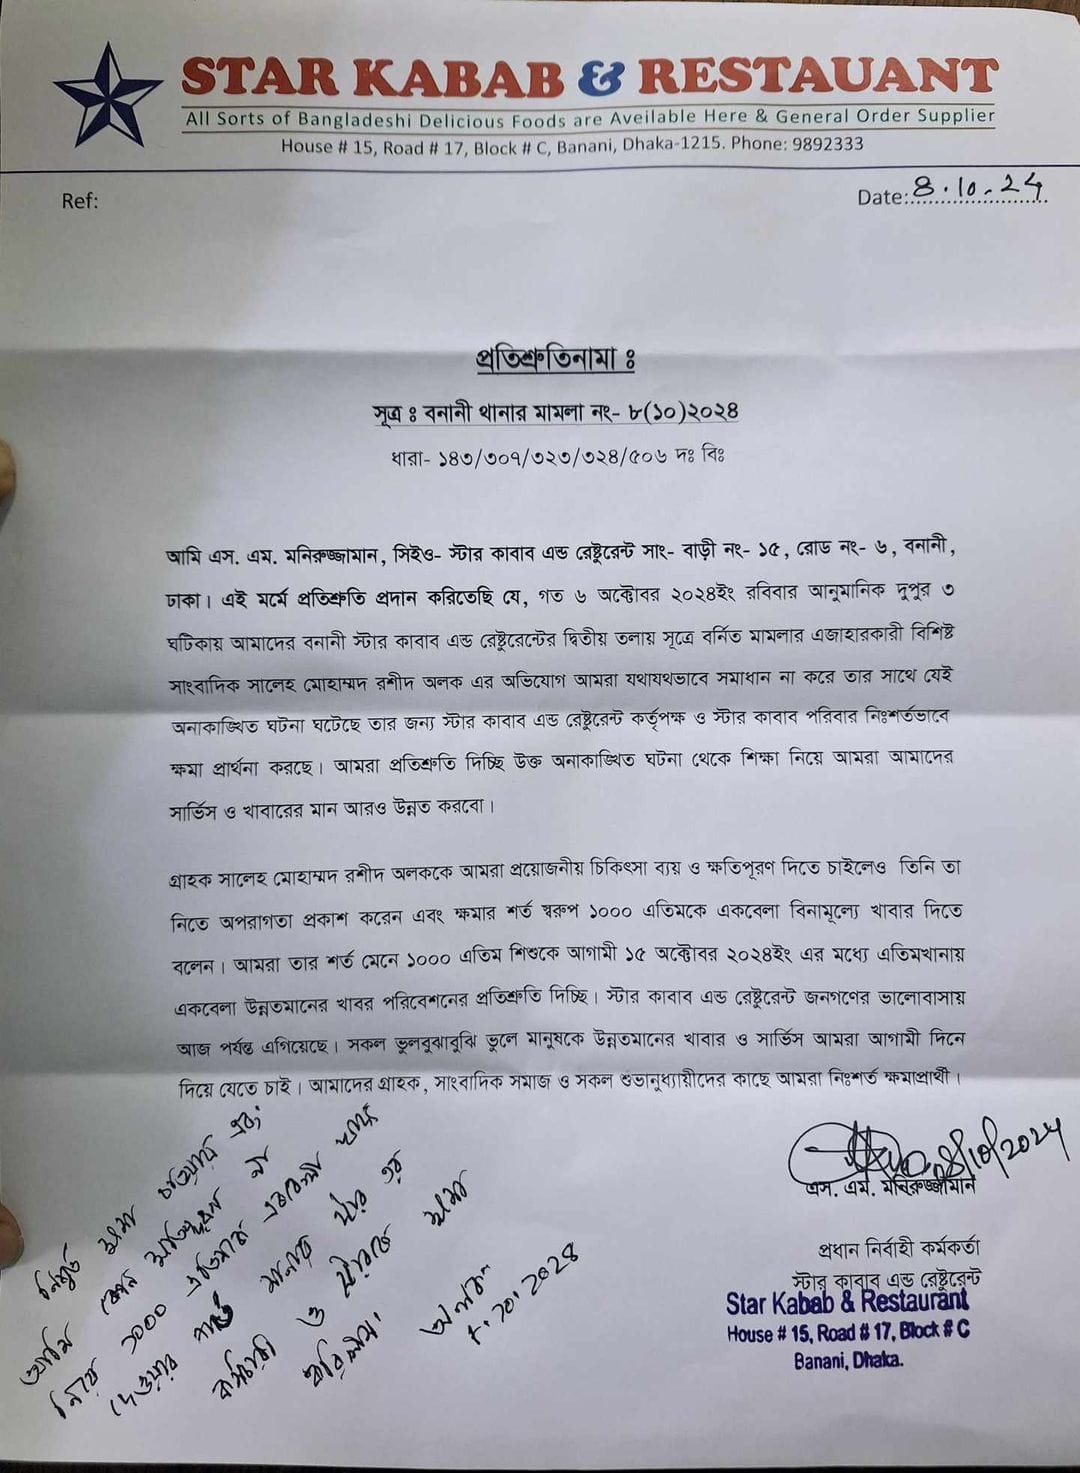 STAR KABAB & RESTAUANT
All Sorts of Bangladeshi Delicious Foods are Aveilable Here & General Order Supplier
House # 15, Road # 17, Block # C, Banani, Dhaka-1215. Phone: 9892333
Ref:
Date: 8.10.24
প্রতিশ্রুতিনামা ঃ
সূত্র ঃ বনানী থানার মামলা নং- ৮(১০)২০২৪
ধারা- ১৪৩/৩০৭/৩২৩/৩২৪/৫০৬ দঃ বিঃ
আমি এস. এম. মনিরুজ্জামান, সিইও- স্টার কাবাব এন্ড রেষ্টুরেন্ট সাং- বাড়ী নং- ১৫, রোড নং- ৬, বনানী,
ঢাকা। এই মর্মে প্রতিশ্রুতি প্রদান করিতেছি যে, গত ৬ অক্টোবর ২০২৪ইং রবিবার আনুমানিক দুপুর ৩
ঘটিকায় আমাদের বনানী স্টার কাবাব এন্ড রেষ্টুরেন্টের দ্বিতীয় তলায় সূত্রে বর্নিত মামলার এজাহারকারী বিশিষ্ট
সাংবাদিক সালেহ মোহাম্মদ রশীদ অলক এর অভিযোগ আমরা যথাযথভাবে সমাধান না করে তার সাথে যেই
অনাকাঙ্খিত ঘটনা ঘটেছে তার জন্য স্টার কাবাব এন্ড রেষ্টুরেন্ট কর্তৃপক্ষ ও স্টার কাবাব পরিবার নিঃশর্তভাবে
ক্ষমা প্রার্থনা করছে। আমরা প্রতিশ্রুতি দিচ্ছি উক্ত অনাকাঙ্খিত ঘটনা থেকে শিক্ষা নিয়ে আমরা আমাদের
সার্ভিস ও খাবারের মান আরও উন্নত করবো।
গ্রাহক সালেহ মোহাম্মদ রশীদ অলককে আমরা প্রয়োজনীয় চিকিৎসা ব্যয় ও ক্ষতিপূরণ দিতে চাইলেও তিনি তা
নিতে অপরাগতা প্রকাশ করেন এবং ক্ষমার শর্ত স্বরুপ ১০০০ এতিমকে একবেলা বিনামূল্যে খাবার দিতে
বলেন। আমরা তার শর্ত মেনে ১০০০ এতিম শিশুকে আগামী ১৫ অক্টোবর ২০২৪ইং এর মধ্যে এতিমখানায়
একবেলা উন্নতমানের খাবর পরিবেশনের প্রতিশ্রুতি দিচ্ছি। স্টার কাবাব এন্ড রেষ্টুরেন্ট জনগণের ভালোবাসায়
আজ পর্যন্ত এগিয়েছে। সকল ভুলবুঝাবুঝি ভুলে মানুষকে উন্নতমানের খাবার ও সার্ভিস আমরা আগামী দিনে
দিয়ে যেতে চাই। আমাদের গ্রাহক, সাংবাদিক সমাজ ও সকল শুভানুধ্যায়ীদের কাছে আমরা নিঃশর্ত ক্ষমাপ্রার্থী।
08/10/2024
এস. এম. মনিরুজ্জামান
প্রধান নির্বাহী কর্মকর্তা
স্টার কাবাব এন্ড রেষ্টুরেন্ট
Star Kabab & Restaurant
House # 15, Road # 17, Block # C
Banani, Dhaka.
ক্ষমা চাওয়ায় এবং
আমি কোন ক্ষতিপূরণ না
নিয়ে ১০০০ এতিমকে একবেলা
দেওয়ার শর্তে স্টার এর
কর্মচারী ও স্টারকে ক্ষমা
করিলাম।
অলক
৮.১০.২০২৪